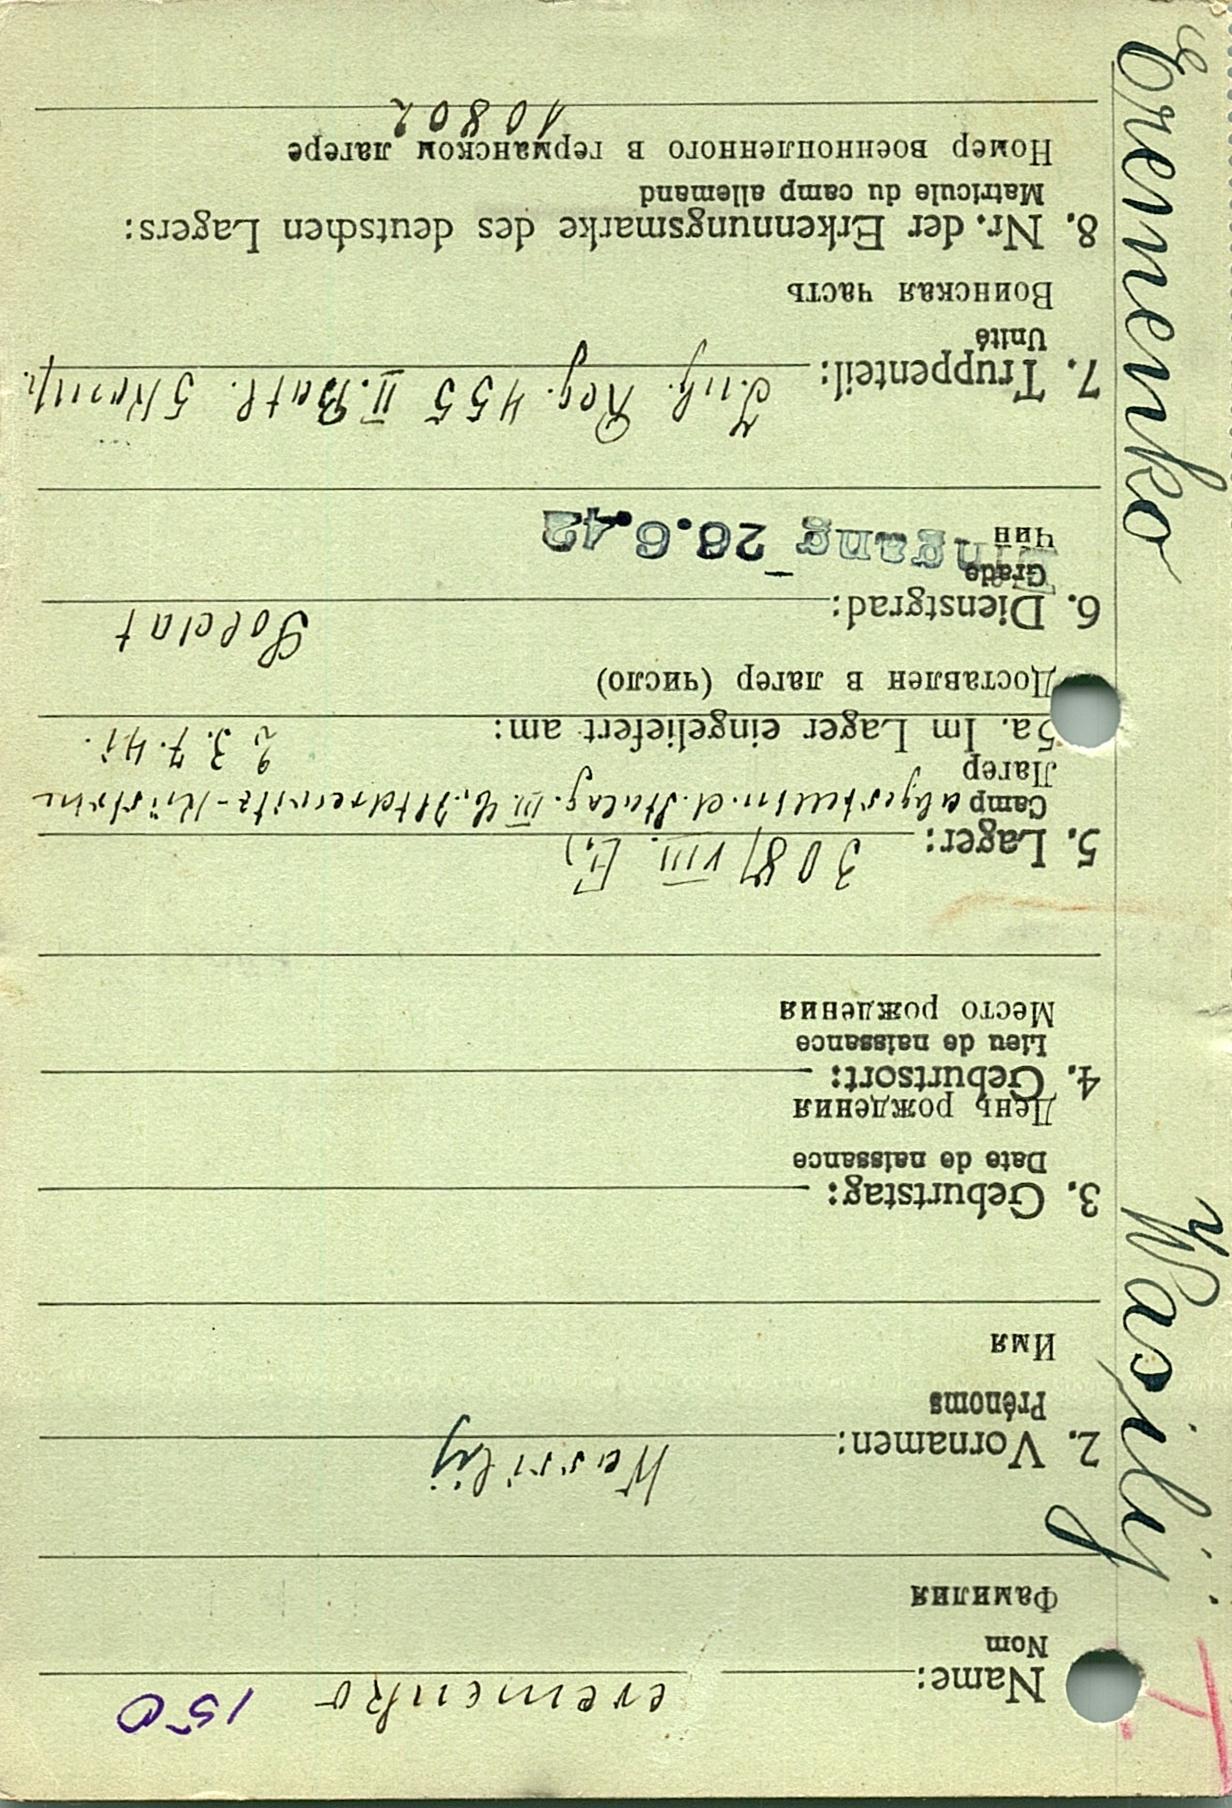 Eremenko Wasilij
150
Name: eremenko
Nom
Фамилия
2. Vornamen: Wassilij
Prénoms
Имя
3. Geburtstag:
Date de naissance
День рождения
4. Geburtsort:
Lieu de naissance
Место рождения
5. Lager: 308/VIII. E,)
Camp abgestellt n. d. Stalag. III. C. Altdrewitz-Küstrin
Лагер
5a. Im Lager eingeliefert am: 23.7.41.
Доставлен в лагер (число)
6. Dienstgrad: Soldat
Grade
Чин
Eingang 26.6.42
7. Truppenteil: Inf. Reg. 455 II. Batl. 5 Komp.
Unité
Воинская часть
8. Nr. der Erkennungsmarke des deutschen Lagers:
Matricule du camp allemand
Номер военнопленного в германском лагере
10802